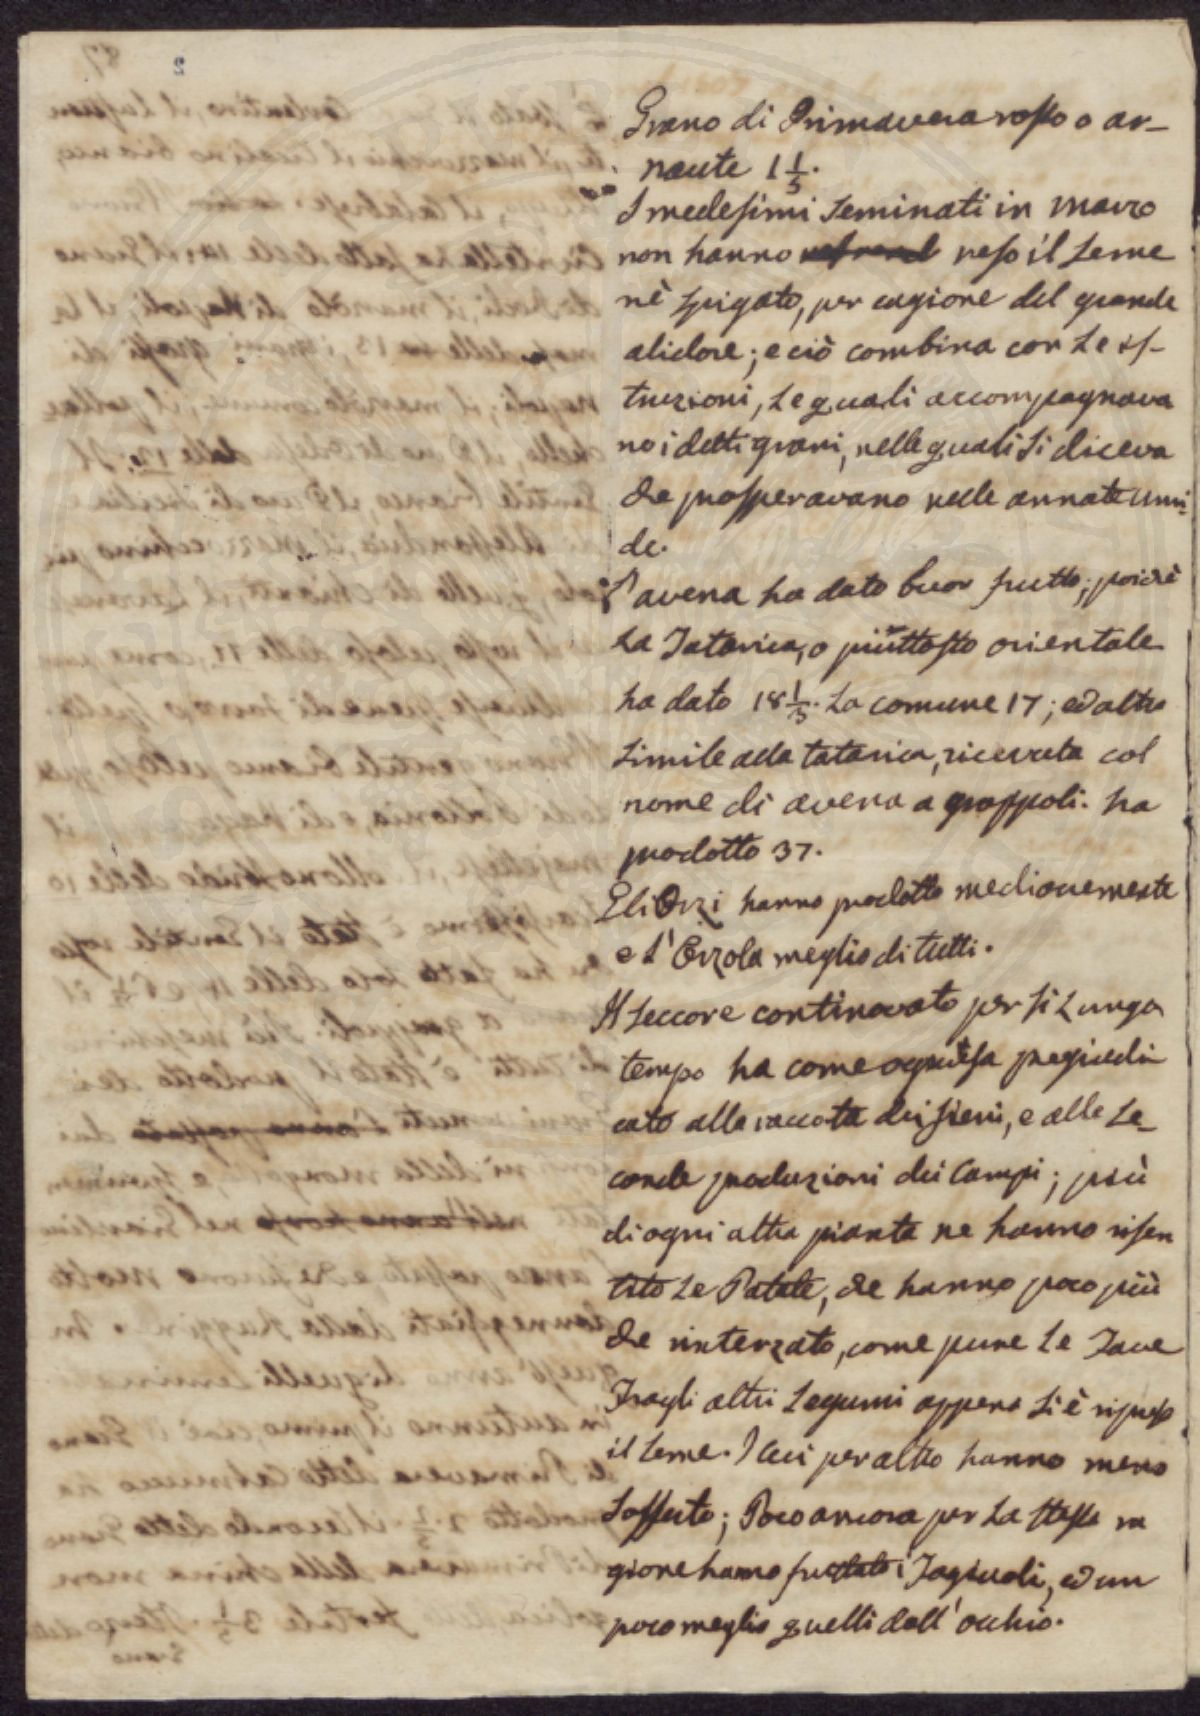 Grano di Primavera rosso o ar-
naute 1 1/3.
I medesimi seminati in Marzo
non hanno reso il seme
nè spigato, per cagione del grande
alidore; e ciò combina con le is-
truzioni, le quali accompagnava
no i detti grani, nelle quali si diceva
che prosperavano nelle annate umi-
de.
L'avena ha dato buon frutto; poichè
la Tatarica, o piuttosto orientale
ha dato 18 1/3. La comune 17; ed altra
simile alla tatarica, ricevuta col
nome di avena a grappoli. ha
prodotto 37.
Gli Orzi hanno prodotto mediocremente
e l'Orzola meglio di tutti.
Il seccore continovato per sì lunga
tempo ha come ognun sa pregiudi
cato alla raccolta dei fieni, e alle se-
conde produzioni dei Campi; più
di ogni altra pianta ne hanno risen
tito le Patate, che hanno poco più
che rinterzato, come pure le Fave
Fragli altri Legumi appena si è ripreso
il seme. I Ceci per altro hanno meno
sofferto; Poco ancora per la stessa ra
gione hanno fruttato i Fagiuoli, ed un
poco meglio quelli dall'occhio.